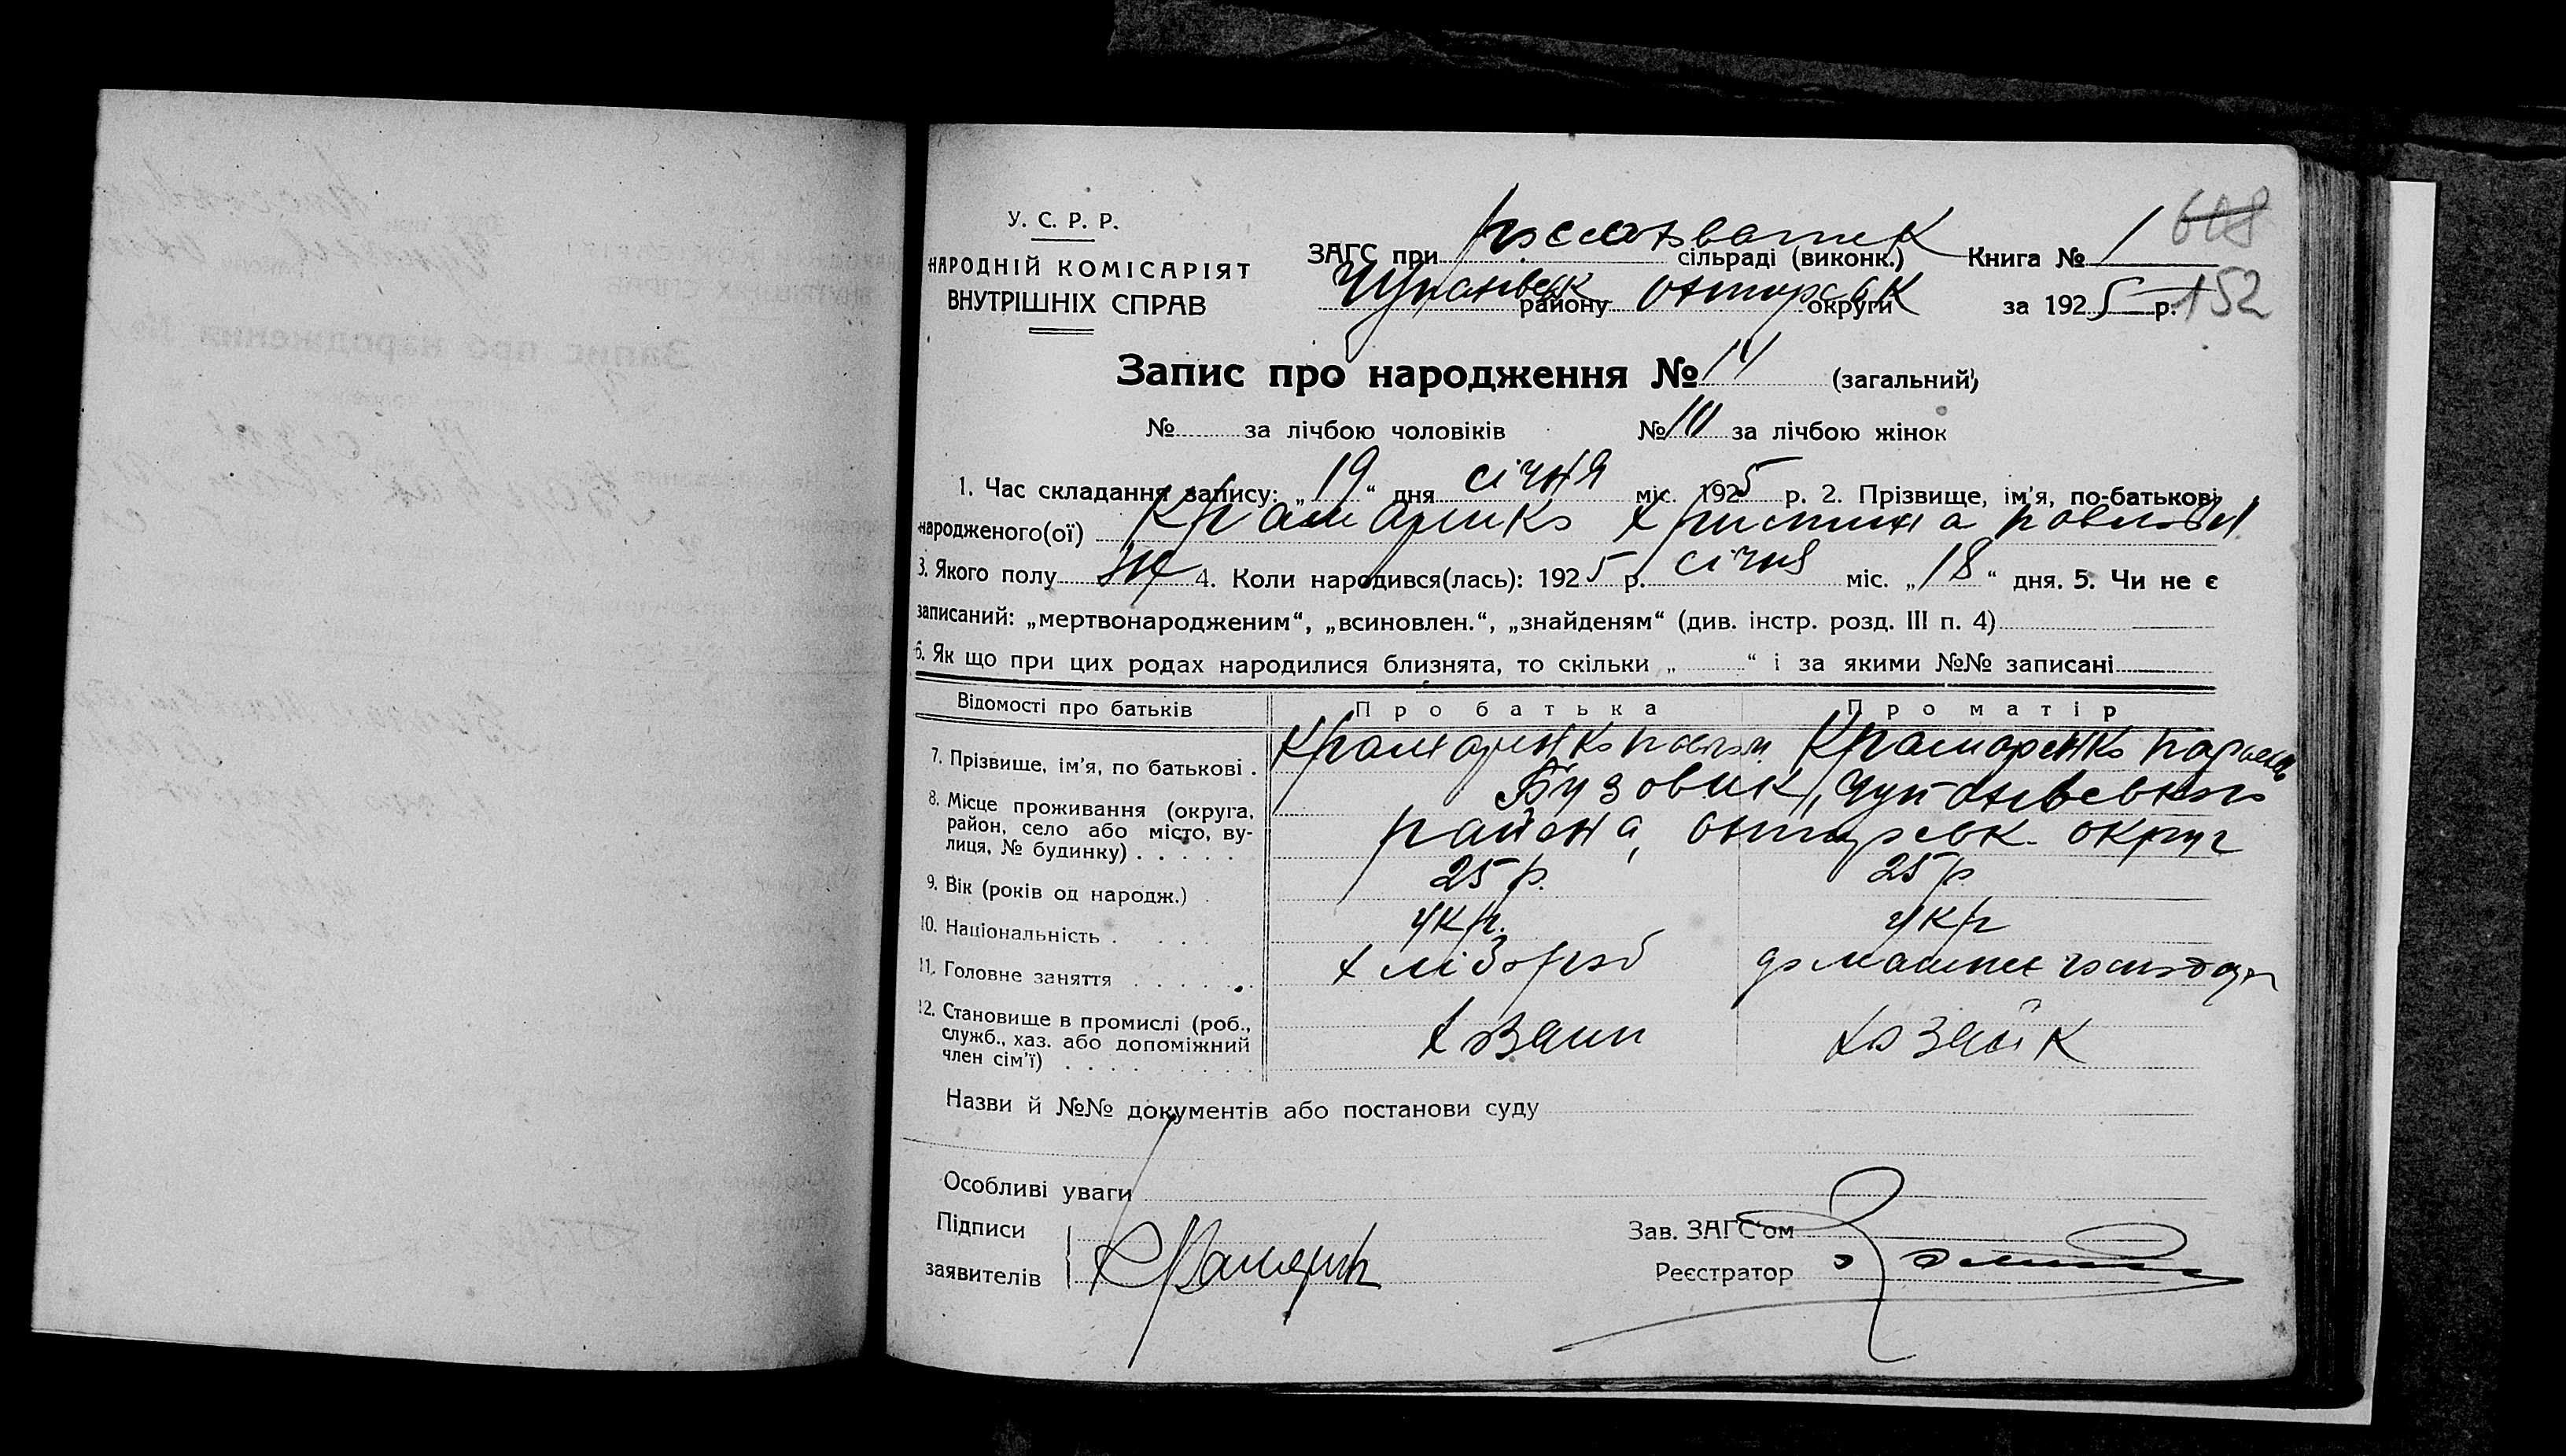 У. С. Р. Р.
НАРОДНІЙ КОМІСАРІЯТ
ВНУТРІШНІХ СПРАВ
ЗАГС при сільраді (виконк.) Книга № 1 618
району округи за 1925 р. 152
Запис про народження № 14 (загальний)
№ за лічбою чоловіків № 10 за лічбою жінок
1. Час складання запису: „19“ дня січня міс. 1925 р. 2. Прізвище, ім'я, по-батькові
народженого(ої) Крамаренко Христина Павлов
3. Якого полу Ж 4. Коли народився(лась): 1925 р. січня міс. „18“ дня. 5. Чи не є
записаний: „мертвонародженим“, „всиновлен.“, „знайденям“ (див. інстр. розд. III п. 4)
6. Як що при цих родах народилися близнята, то скільки „ “ і за якими №№ записані
Відомості про батьків Про батька Про матір
7. Прізвище, ім'я, по батькові . Крамаренко Павло Крамаренко
8. Місце проживання (округа, район, село або місто, вулиця, № будинку) . . . . . Бузовик, Чупахівського
района, Охтирськ. округ
9. Вік (років од народж.) . 25 р. 25 р
10. Національність . . . . укр. укр
11. Головне заняття . . . . . . хлібороб домашнє господар
12. Становище в промислі (роб., служб., хаз. або допоміжний член сім'ї) . . . . . . . . хозяин хозяйк
Назви й №№ документів або постанови суду
Особливі уваги
Підписи
заявителів
Зав. ЗАГС'ом
Реєстратор